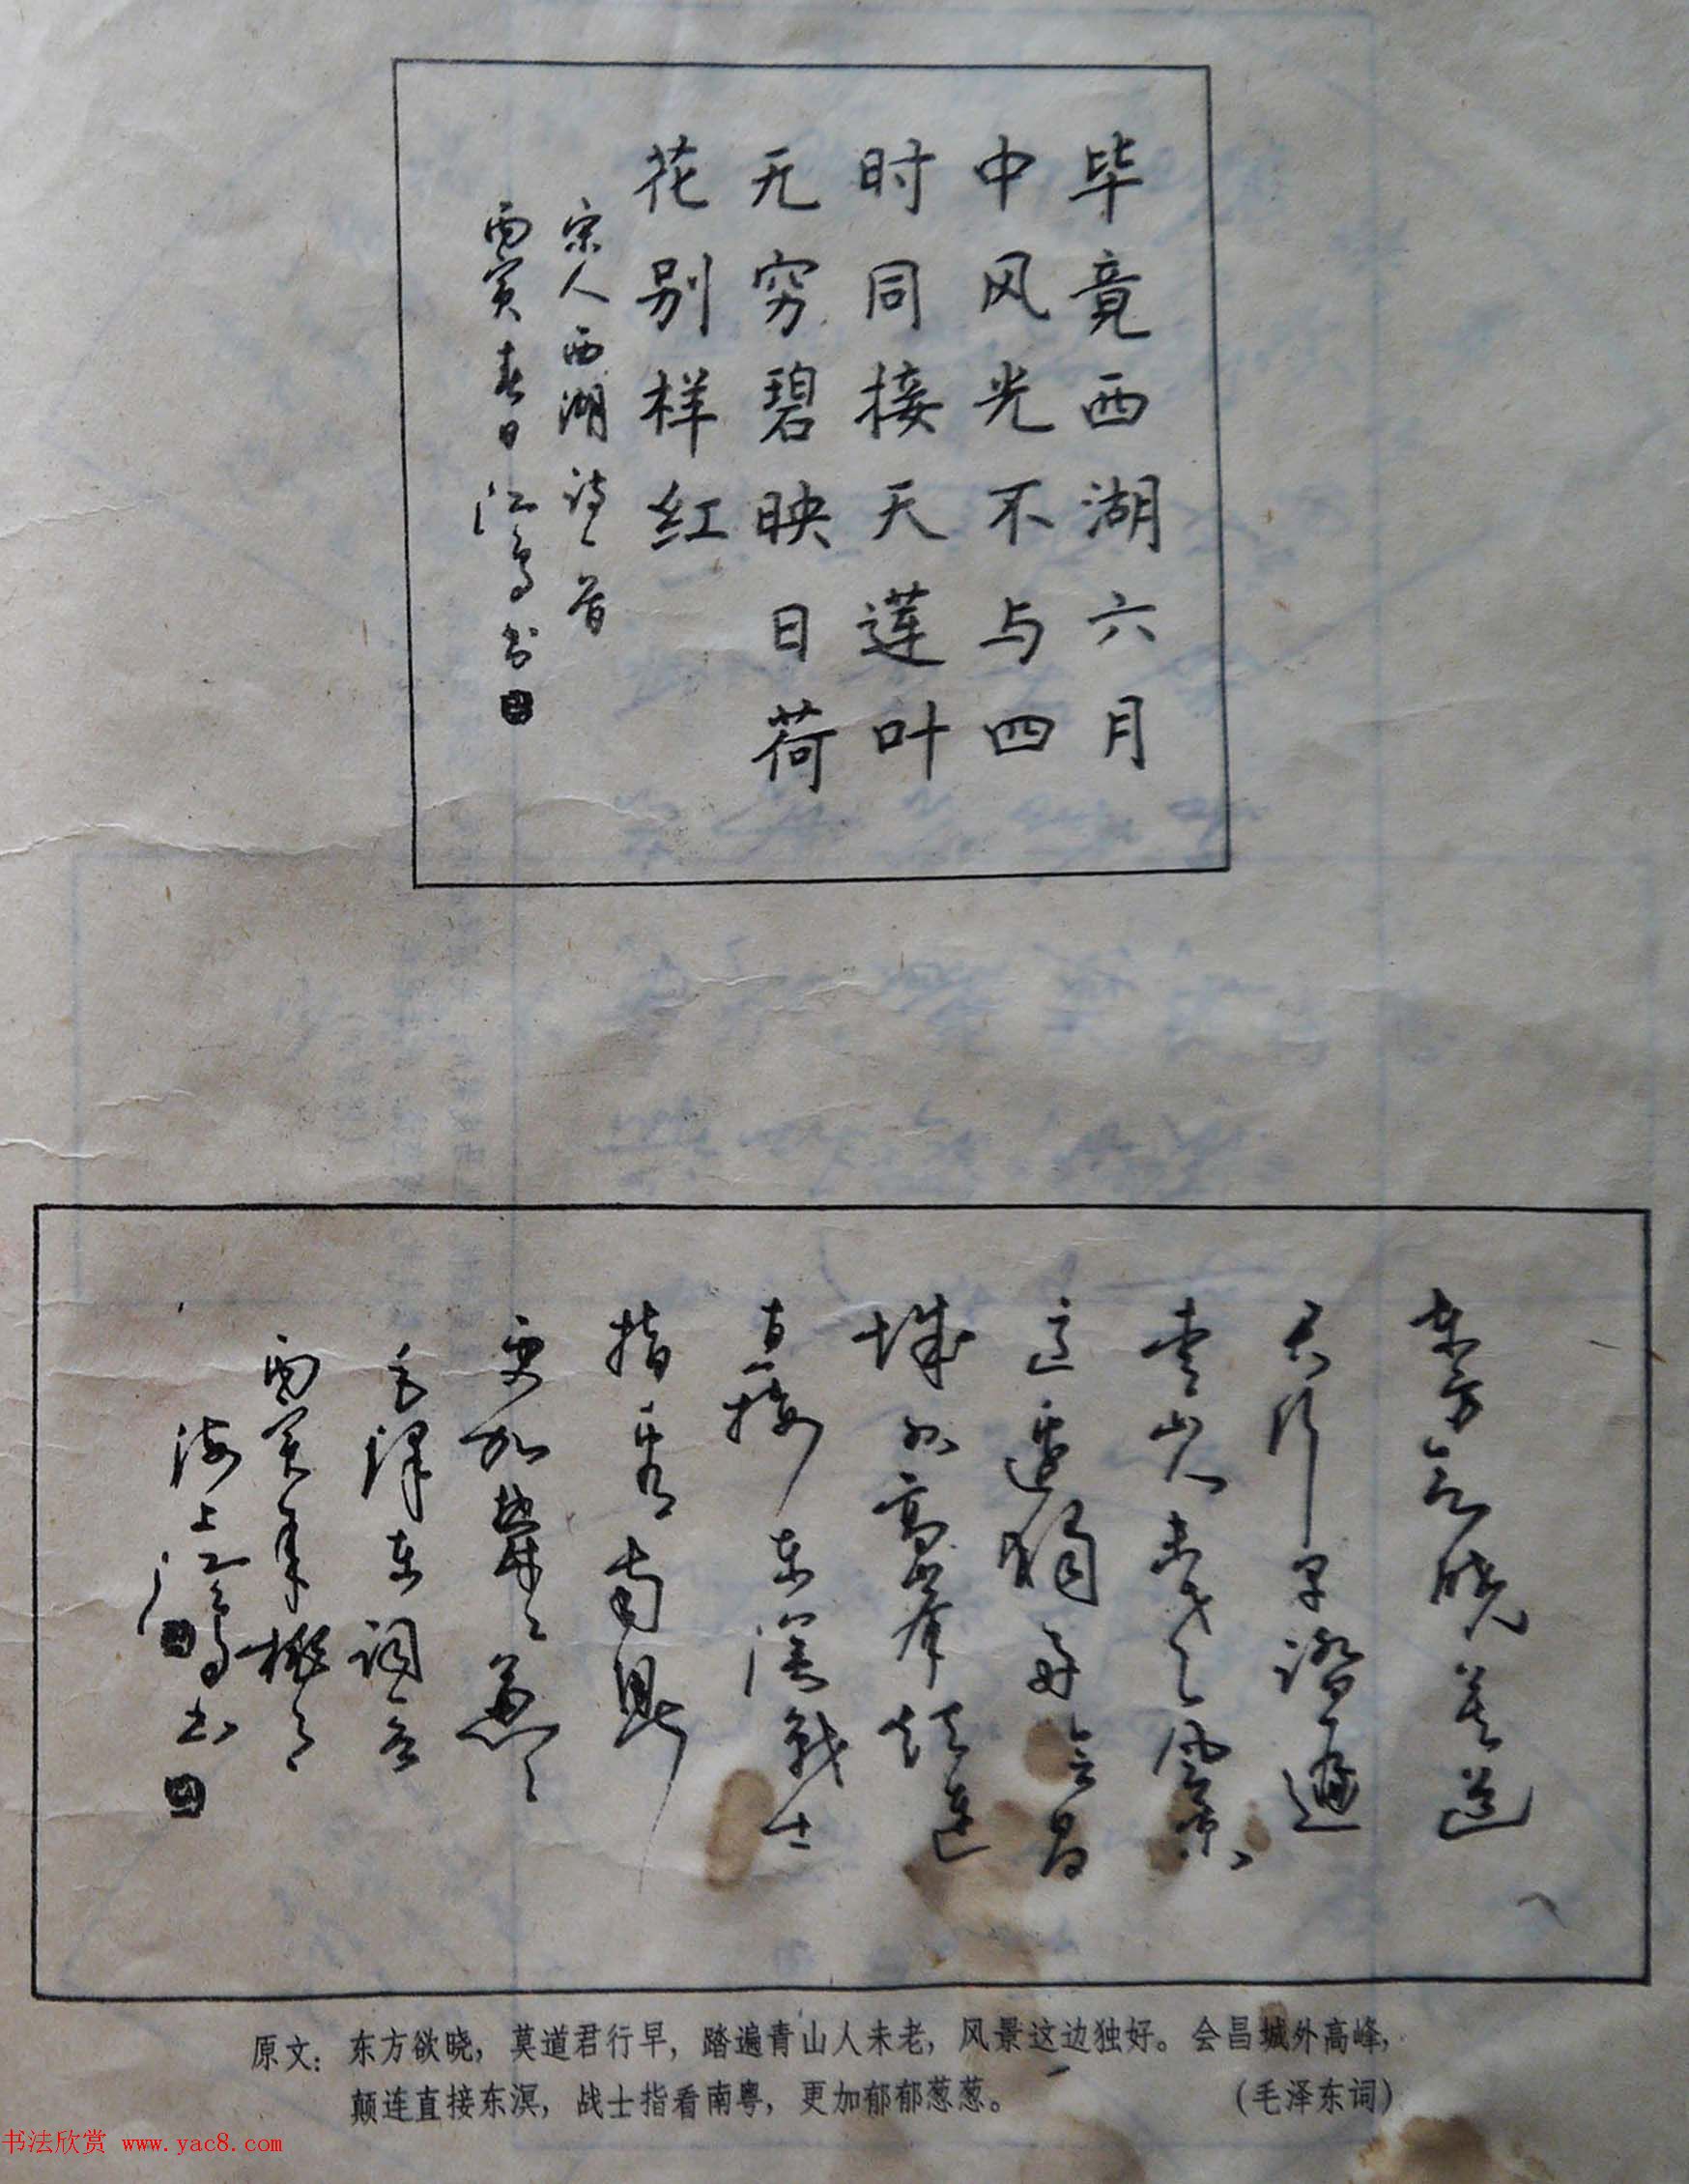 毕竟西湖六月
中风光不与四
时同接天莲叶
无穷碧映日荷
花别样红
宋人西湖诗一首
丙寅春日江鸟书
东方欲晓莫道
君行早踏遍
青山人未老风景
这边独好会昌
城外高峰颠连
直接东溟战士
指看南粤
更加郁郁葱葱
毛泽东词会
丙寅年
海上江鸟书
原文：东方欲晓，莫道君行早，踏遍青山人未老，风景这边独好。会昌城外高峰，
颠连直接东溟，战士指看南粤，更加郁郁葱葱。 （毛泽东词）
书法欣赏 www.yac8.com